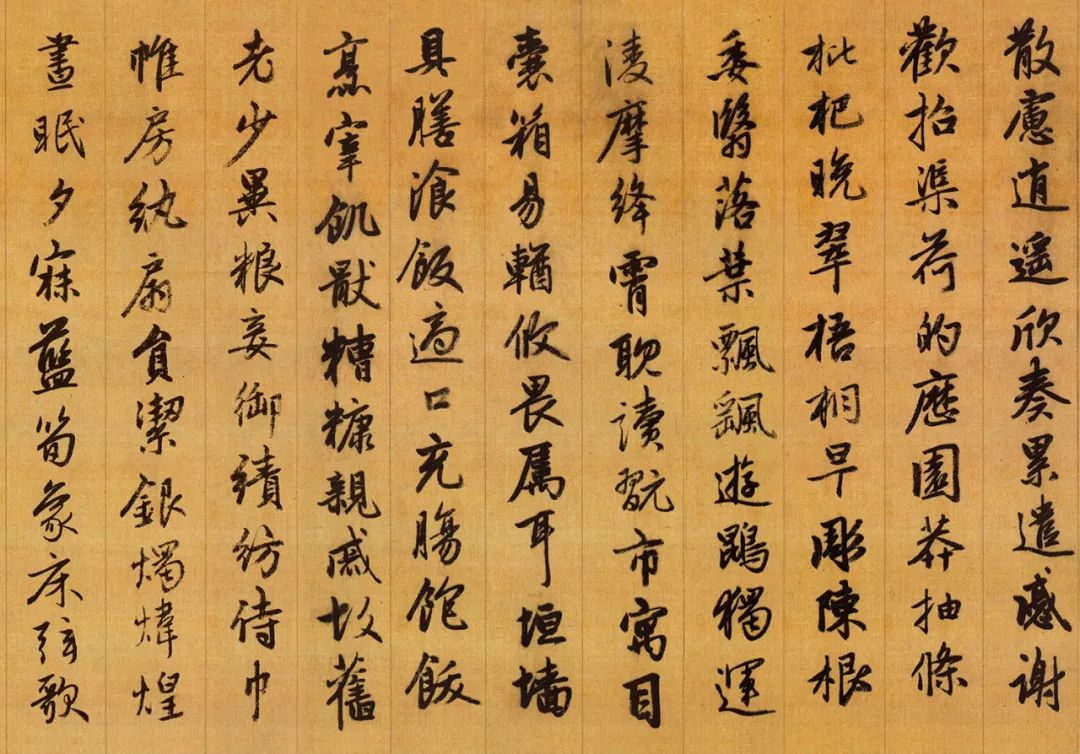 散慮逍遥欣奏累遣慼谢
歡招渠荷的歷園莽抽條
枇杷晚翠梧桐早彫陳根
委翳落葉飄颻遊鵾獨運
淩摩絳霄耽讀翫市寓目
囊箱易輶攸畏属耳垣墙
具膳飡飯適口充腸飽飫
烹宰飢猒糟糠親戚故舊
老少異粮妾御績紡侍巾
帷房紈扇員潔銀燭煒煌
晝眠夕寐藍筍象床弦歌